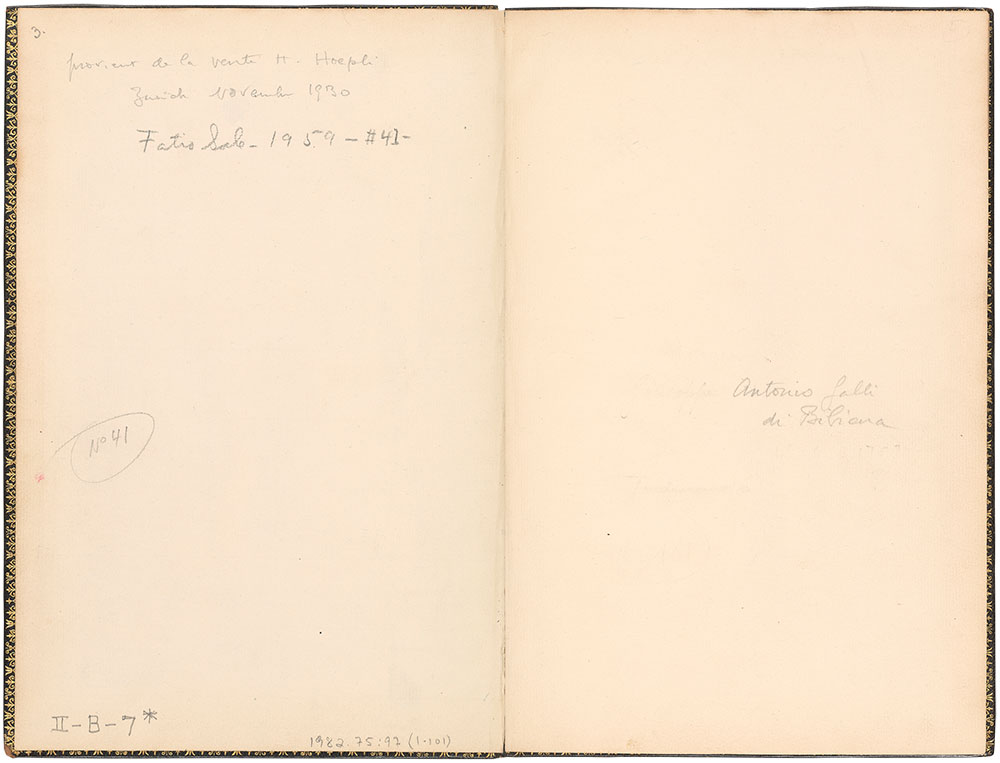 3.
provient de la vente H. Hoepli
Zurich Novembre 1930
Fatio Sale - 1959 - #41-
No 41
II-B-7*
1982.75:97 (1-101)
5
Antonio Galli
di Bibiena